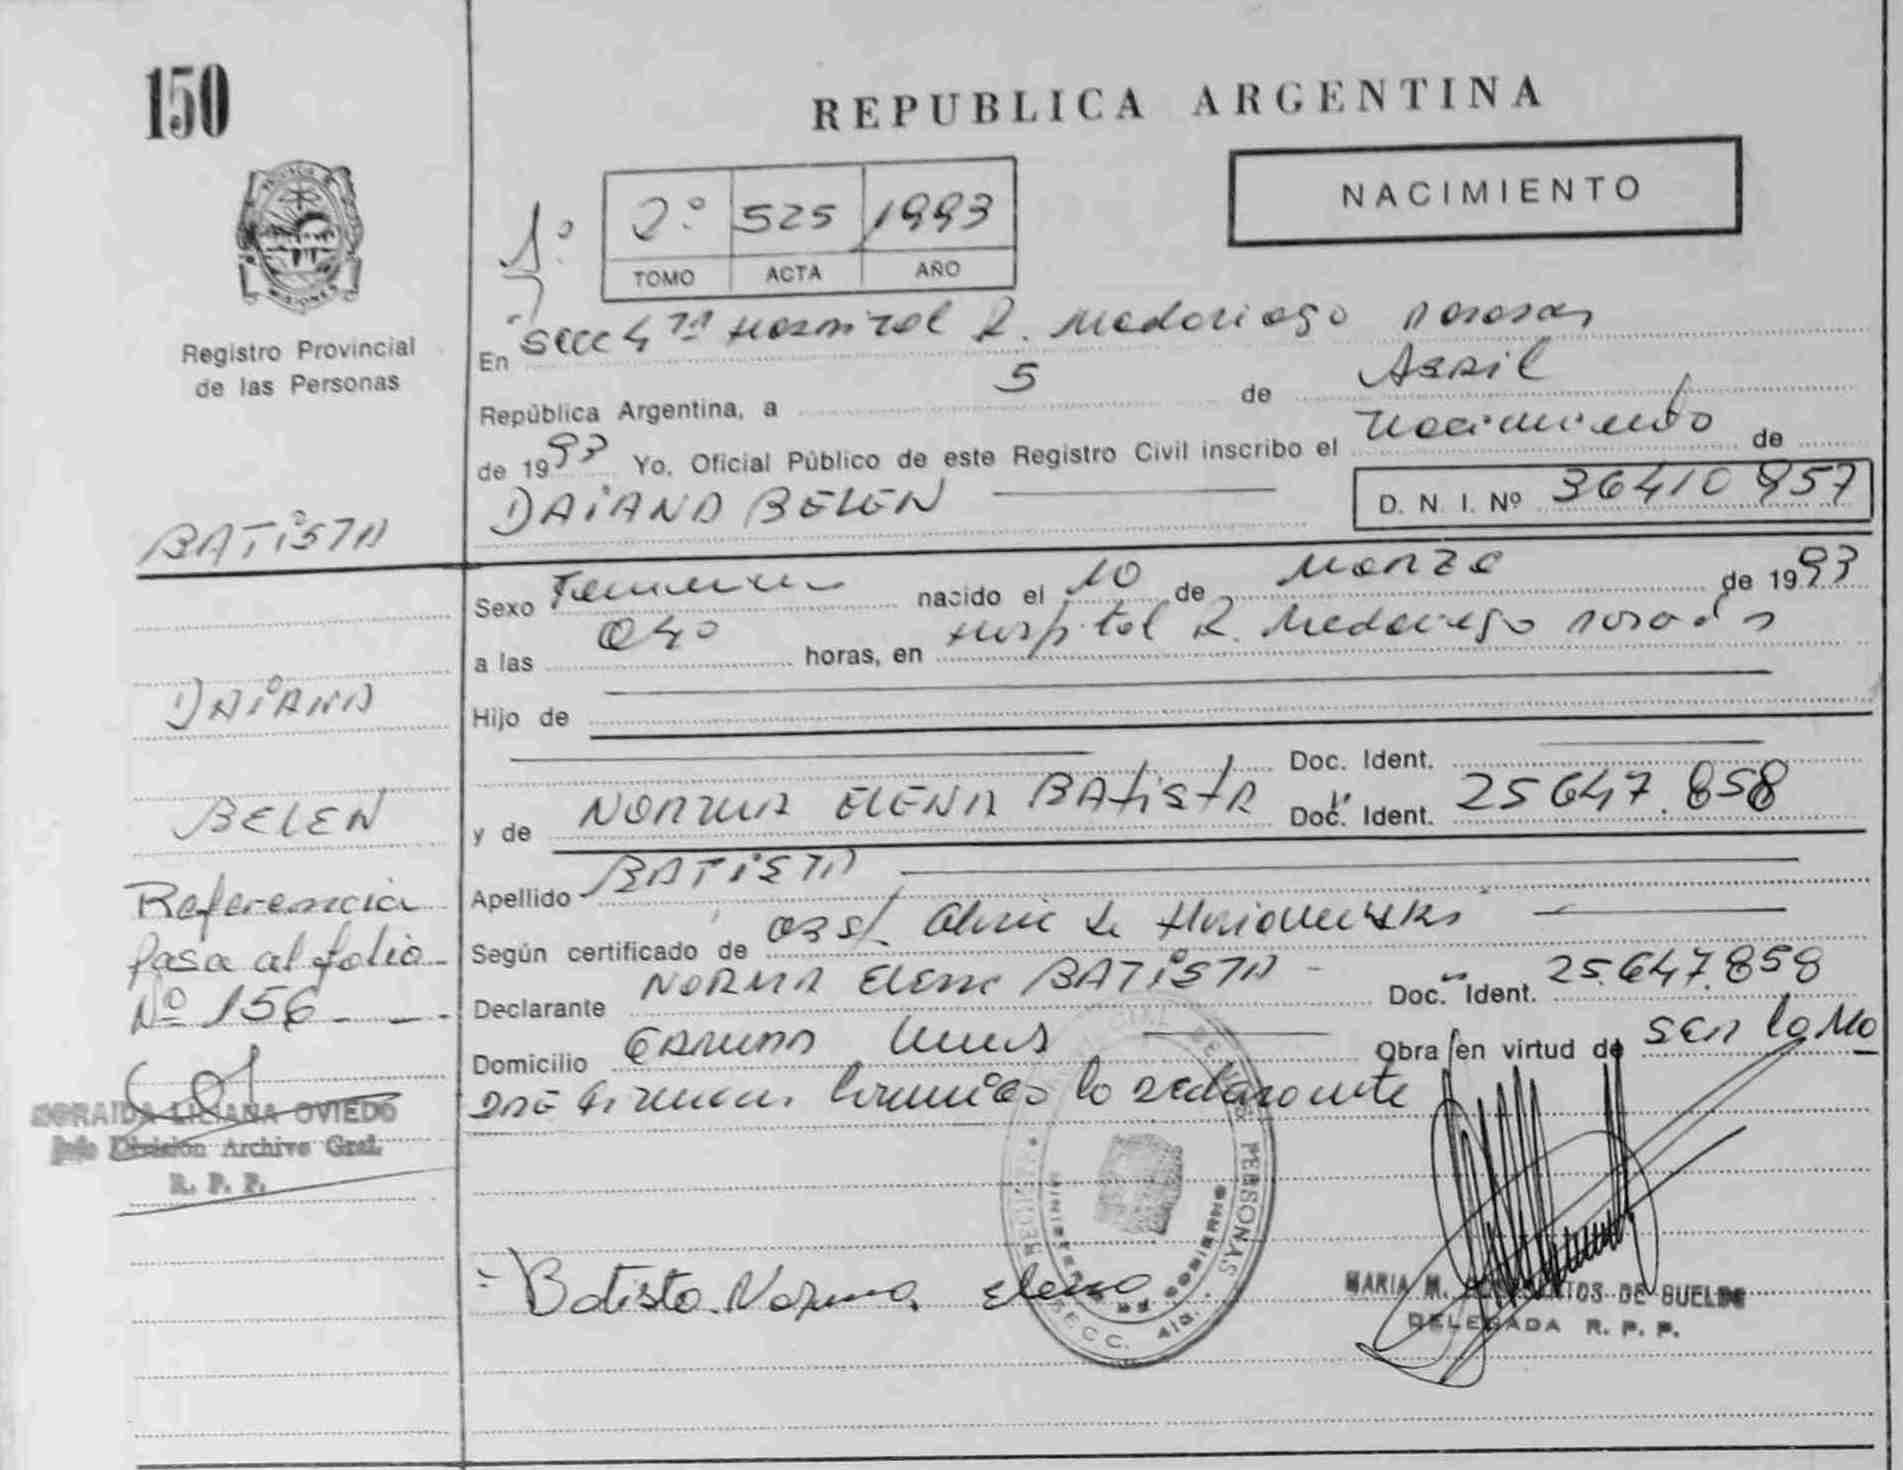 150
REPUBLICA ARGENTINA
NACIMIENTO
1º
2º 525 1993
TOMO ACTA AÑO
PROVINCIA DE
MISIONES
Registro Provincial
de las Personas
En Secc 4ta Hospital R. Madariaga Posadas
República Argentina, a 5 de Abril
de 1993 Yo, Oficial Público de este Registro Civil inscribo el nacimiento de
DAIANA BELEN
D. N. I. Nº 36410857
BATISTA
DAIANA
BELEN
Referencia
pasa al folio
Nº 156
LILIANA OVIEDO
Jefe División Archivo Gral.
R. P. P.
Sexo Femenino nacido el 10 de Marzo de 1993
a las 040 horas, en Hospital R. Madariaga Posadas
Hijo de
Doc. Ident.
y de NORMA ELENA BATISTA Doc. Ident. 25647.858
Apellido BATISTA
Según certificado de Obst.
Declarante NORMA Elena BATISTA Doc. Ident. 25.647.858
Domicilio Obra en virtud de ser la Ma
dre firman la declarante
Batista Norma Elena
PERSONAS
MINISTERIO DE GOBIERNO
SECC. 4ta.
MARIA M. DE BUELDE
DELEGADA R. P. P.